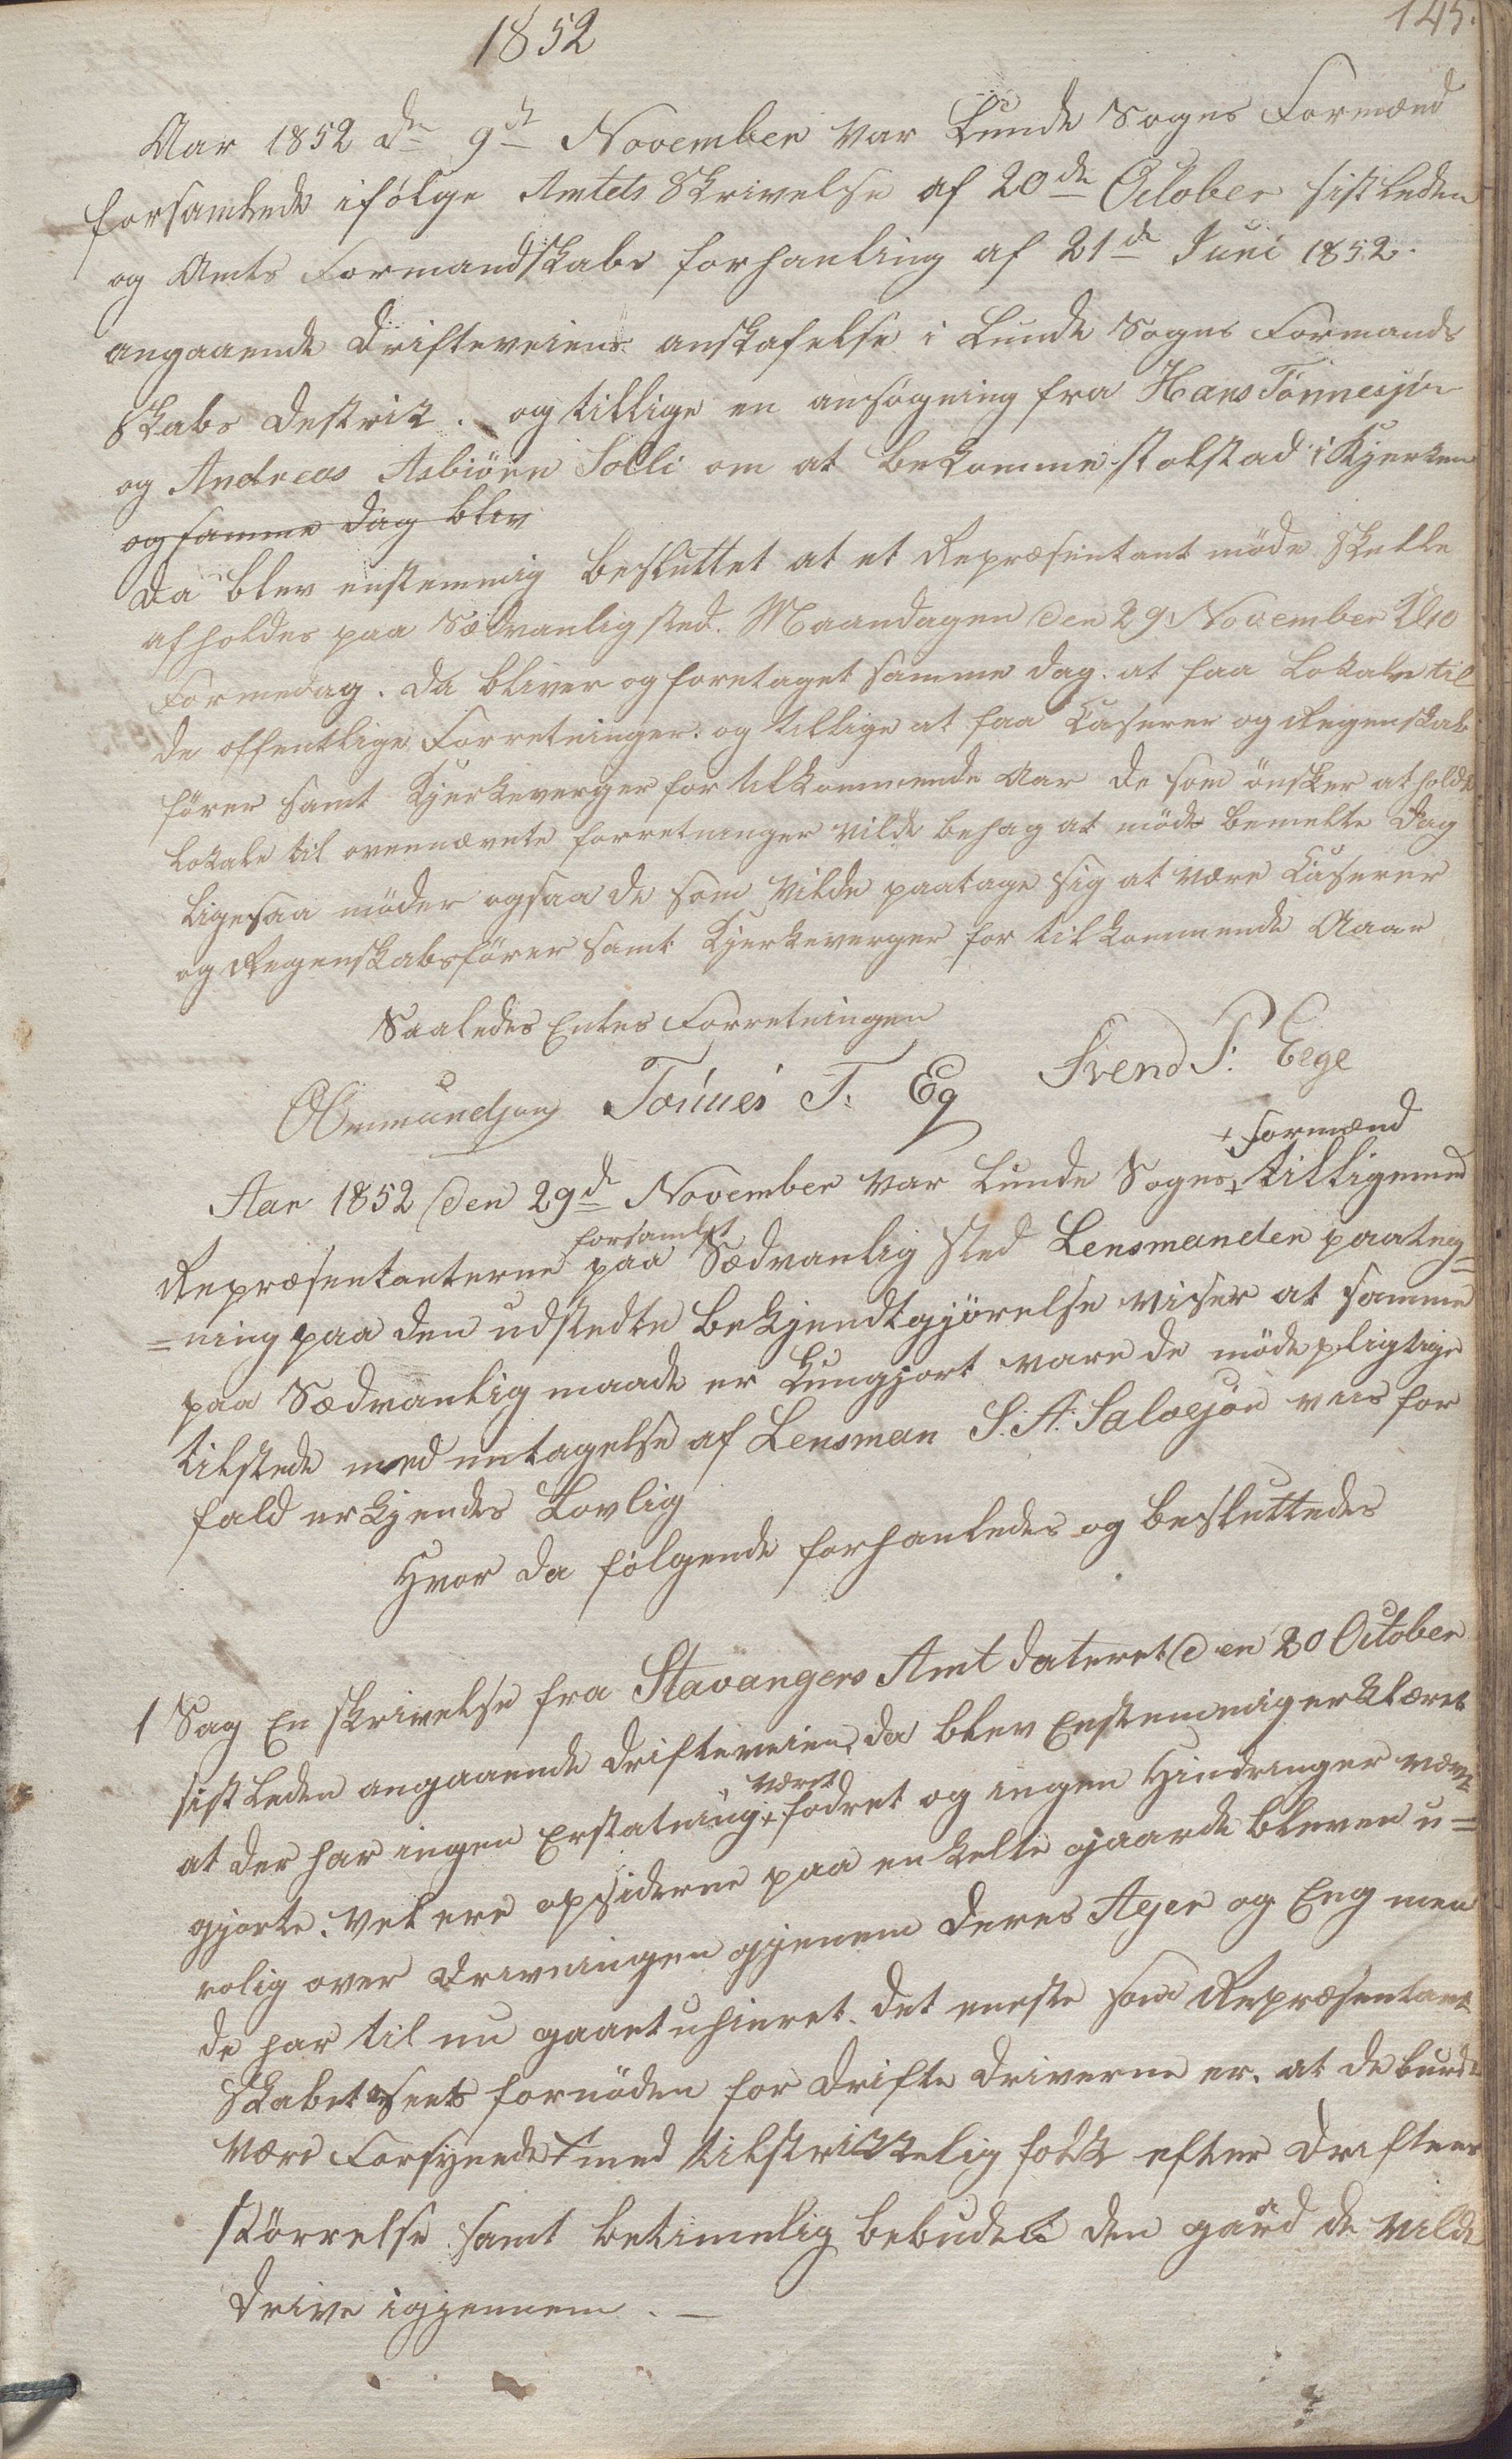 1852
145.
Aar 1852 dn 9de November var Lunde Sogns Formænd
forsamlede ifølge Amtets Skrivelse af 20de October sistleden
og Amts Formandskabs forhanling af 21de Juni 1852.
angaaende Drifteveiens anskafelse i Lunde Sogns Formands
skabs Destrict. og tillige en ansøgning fra Hans Tönnesjön
og Andreas Asbiörn Solli om at bekomme stolstad i Kjerken
og samme dag blev
Da blev enstemmig besluttet at et Repræsentant möde skulle
afholdes paa Sædvanlig sted. Maandagen den 29 November Kl 10
Formedag. Da bliver og foretaget samme dag at faa Lokale til
de offentlige Forretninger. og tillige at faa Caserer og Regenskab
förer samt Kjerkeverger for tilkommende Aar De som önsker at holde
Lokale til ovennævnte forretninger vilde behag at möde bemelte Dag
ligesaa möder ogsaa de som vilde paatage sig at være Caserer
og Regenskabsförer samt Kjerkeverger for tilkommende Aaar
Saaledes Entes Forretningen
OOmmundsen Tönnes T. Eg Svend P. Eege
+ Formænd
Aar 1852 den 29de November var Lunde Sogns + tilligemed
forsamlet
Repræsentanterne paa Sædvanlig sted Lensmanden paateg=
=ning paa den udstedte bekjendtgjörelse viser at samme
paa Sædvanlig maade er kungjort vare de mödepligtige
tilstede med untagelse af Lensman S. A. Salvesön vus for
fald erkjendes Lovlig
Hvor da fölgende forhanledes og besluttedes
1 Sag En skrivelse fra Stavangers Amt dateret den 20 October
sistleden angaaende Drifteveien, da blev Enstemmig erklæret
været
at der har ingen Erstatning + fodret og ingen Hindringer vær
gjorte. Vel ere opsiderne paa enkelte gaarde bleven u=
rolig over Drivningen gjenem Deres Ager og Eng men
de har til nu gaaet uhinret. Det eneste som Repræsentant
skabet seets fornöden for Drifte Driverne er. at de burde
være Forsynede + med tilstrikkelig folk efter Driftens
störrelse samt betimelig bebudet den gård de vilde
Drive igjennem. —